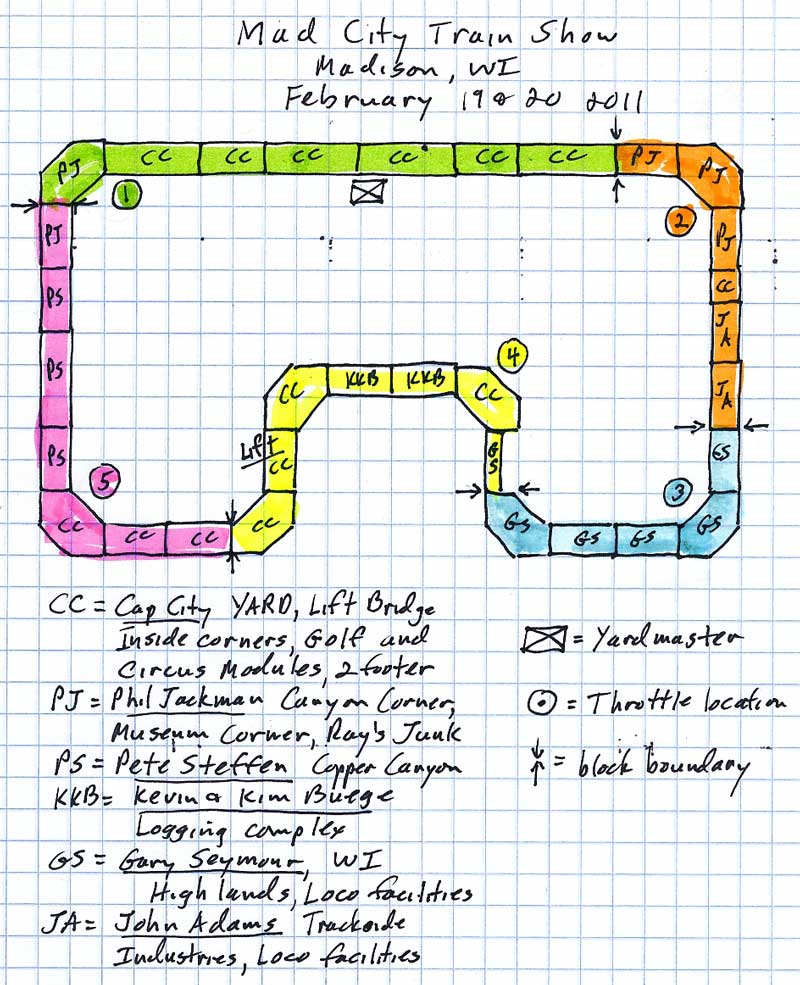 Mad City Train Show
Madison, WI
February 19 & 20 2011
PJ CC CC CC CC CC CC PJ PJ
1
2
PJ
PS
PS
PS
CC CC CC
5
PJ
CC
JA
JA
4
CC KKB KKB CC
Lift
CC
CC
GS
GS
3
GS GS GS GS
CC = Cap City YARD, Lift Bridge
Inside corners, Golf and
Circus Modules, 2 footer
PJ = Phil Jackman Canyon Corner,
Museum Corner, Ray's Junk
PS = Pete Steffen Copper Canyon
KKB = Kevin & Kim Buege
Logging complex
GS = Gary Seymour, WI
Highlands, Loco facilities
JA = John Adams Trackside
Industries, Loco facilities
= Yardmaster
= Throttle location
= block boundary